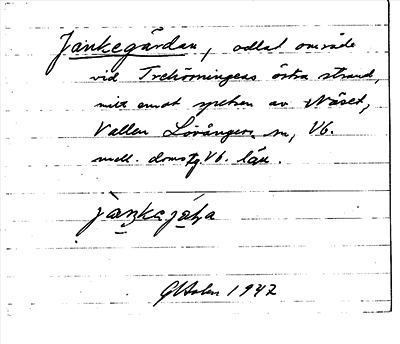 Jankegärdan, odlat område
vid Trehörningens östra strand,
mitt emot spetsen av Näset,
Vallen Lövångers sn, Vb.
mell. doms. Vb. län.
1942